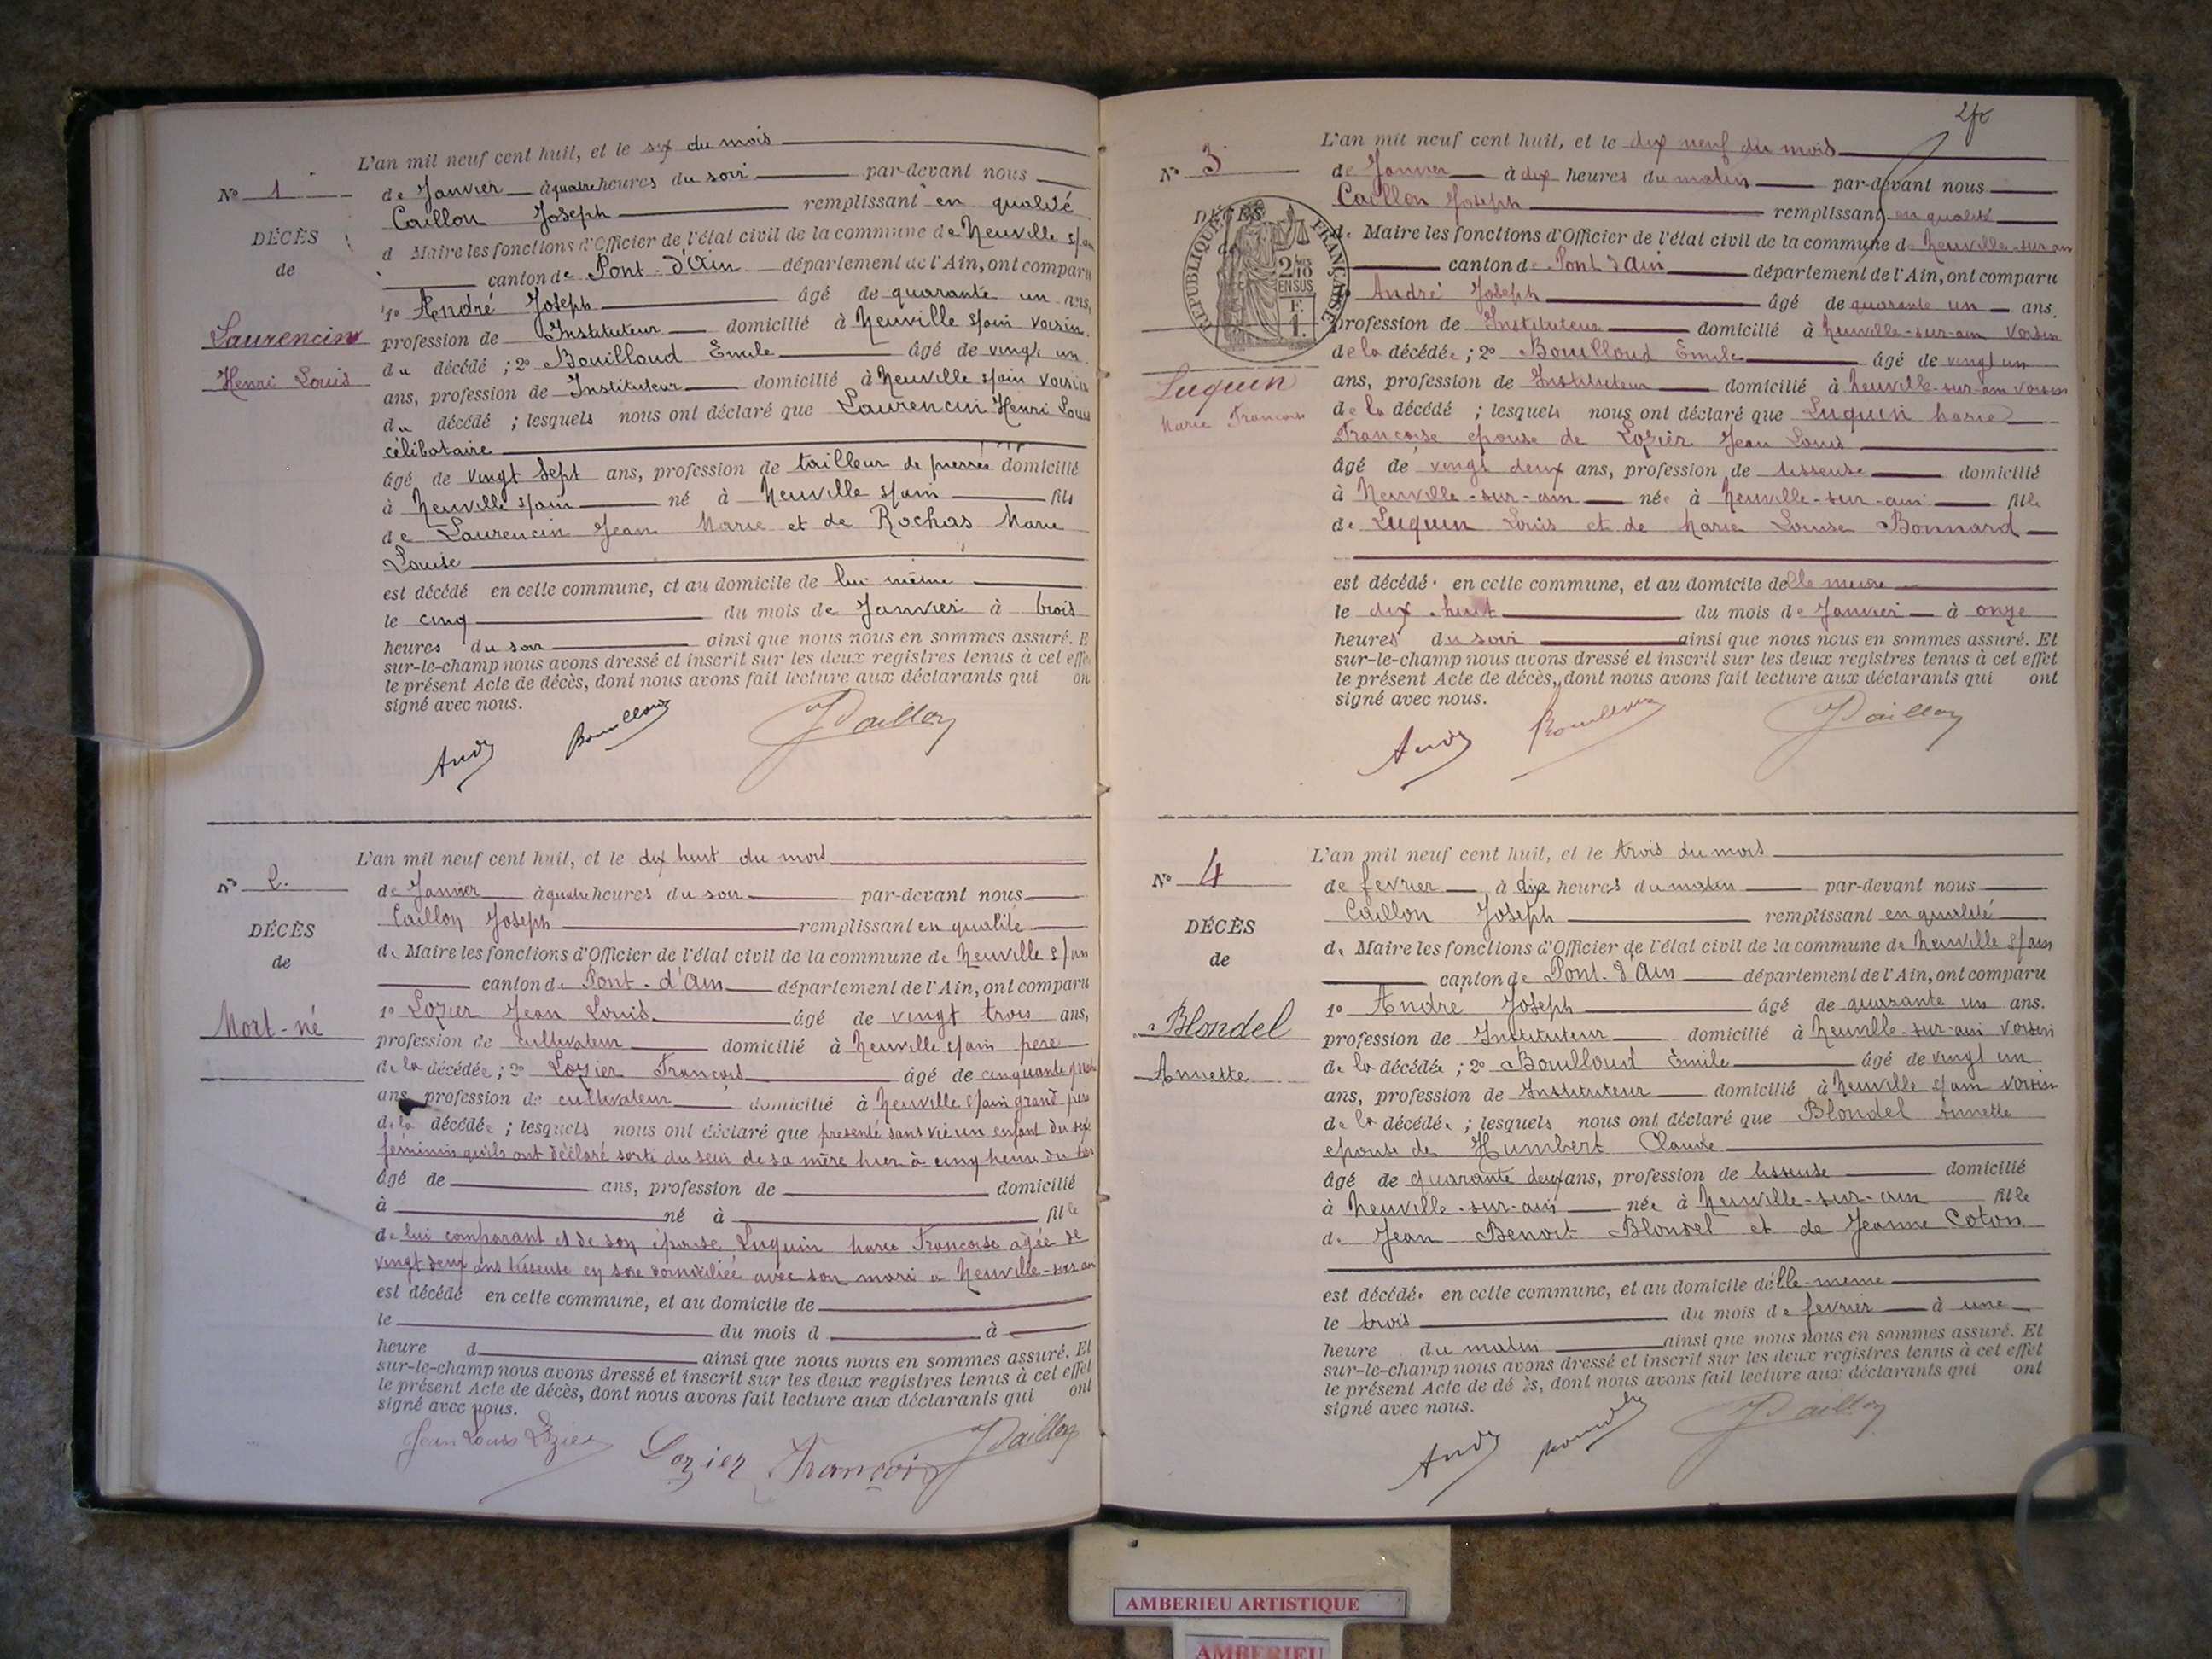 L'an mil neuf cent huit, et le six du mois
N° 1 de Janvier à quatre heures du soir par-devant nous
Caillon Joseph remplissant en qualité
DÉCÈS
d Maire les fonctions d'Officier de l'état civil de la commune de Neuville s/ain
de
canton de Pont-d'Ain département de l'Ain, ont comparu
1° André Joseph âgé de quarante un ans,
Laurencin
profession de Instituteur domicilié à Neuville s/ain voisin
du décédé ; 2° Bouilloud Emile âgé de vingt un
Henri Louis
ans, profession de Instituteur domicilié à Neuville s/ain voisin
du décédé ; lesquels nous ont déclaré que Laurencin Henri Louis
célibataire
âgé de vingt sept ans, profession de tailleur de pierres domicilié
à Neuville s/ain né à Neuville s/ain fils
de Laurencin Jean Marie et de Rochas Marie
Louise
est décédé en cette commune, et au domicile de lui même
le cinq du mois de Janvier à trois
heures du soir ainsi que nous nous en sommes assuré. E
sur-le-champ nous avons dressé et inscrit sur les deux registres tenus à cet effe
le présent Acte de décès, dont nous avons fait lecture aux déclarants qui on
signé avec nous.
André Bouilloud JCaillon
L'an mil neuf cent huit, et le dix huit du mois
N° 2. de Janvier à quatre heures du soir par-devant nous
Caillon Joseph remplissant en qualité
DÉCÈS
de Maire les fonctions d'Officier de l'état civil de la commune de Neuville s/ain
de
canton de Pont-d'Ain département de l'Ain, ont comparu
Mort-né
1° Lozier Jean Louis âgé de vingt trois ans,
profession de cultivateur domicilié à Neuville s/ain pere
de la décédée ; 2° Lozier Francois âgé de cinquante
ans, profession de cultivateur domicilié à Neuville s/ain grand père
de la décédée ; lesquels nous ont déclaré que presenté sans vie un enfant du sexe
féminin qu'ils ont déclaré sorti du sein de sa mère hier à cinq heures du soir
âgé de ans, profession de domicilié
à né à fille
de lui comparant et de son épouse Luquin Marie Francoise agée de
vingt deux ans tisseuse en soie domiciliée avec son mari à Neuville-sur-ain
est décédé en cette commune, et au domicile de
le du mois d à
heure d ainsi que nous nous en sommes assuré. Et
sur-le-champ nous avons dressé et inscrit sur les deux registres tenus à cet effet
le présent Acte de décès, dont nous avons fait lecture aux déclarants qui ont
signé avec nous.
Jean Louis Lozier Lozier François JCaillon
L'an mil neuf cent huit, et le dix neuf du mois
N° 3 de Janvier à dix heures du matin par-devant nous
Caillon Joseph remplissant en qualité
DÉCÈS
de
RÉPUBLIQUE FRANÇAISE
de Maire les fonctions d'Officier de l'état civil de la commune de Neuville-sur-ain
canton de Pont d'Ain département de l'Ain, ont comparu
André Joseph âgé de quarante un ans.
profession de Instituteur domicilié à Neuville-sur-ain voisin
de la décédée ; 2° Bouilloud Emile âgé de vingt un
Luquin
ans, profession de Instituteur domicilié à Neuville-sur-ain voisin
de la décédé ; lesquels nous ont déclaré que Luquin Marie
Marie Francoise
Francoise epouse de Lozier Jean Louis
âgé de vingt deux ans, profession de tisseuse domicilié
à Neuville-sur-ain née à Neuville-sur-ain fille
de Luquin Louis et de Marie Louise Bonnard
est décédée en cette commune, et au domicile delle meme
le dix-huit du mois de Janvier à onze
heures du soir ainsi que nous nous en sommes assuré. Et
sur-le-champ nous avons dressé et inscrit sur les deux registres tenus à cet effet
le présent Acte de décès, dont nous avons fait lecture aux déclarants qui ont
signé avec nous.
André Bouilloud JCaillon
L'an mil neuf cent huit, et le trois du mois
N° 4 de fevrier à dix heures du matin par-devant nous
Caillon Joseph remplissant en qualité
DÉCÈS
de Maire les fonctions d'Officier de l'état civil de la commune de Neuville s/ain
de
canton de Pont-d'Ain département de l'Ain, ont comparu
1° André Joseph âgé de quarante un ans.
Blondel
profession de Instituteur domicilié à Neuville-sur-ain voisin
de la décédée ; 2° Bouilloud Emile âgé de vingt un
Annette
ans, profession de Instituteur domicilié à Neuville s/ain voisin
de la décédée ; lesquels nous ont déclaré que Blondel Annette
epouse de Humbert Claude
âgé de quarante deux ans, profession de tisseuse domicilié
à Neuville-sur-ain née à Neuville-sur-ain fille
de Jean Benoit Blondel et de Jeanne Coton
est décédée en cette commune, et au domicile delle-meme
le trois du mois de fevrier à une
heure du matin ainsi que nous nous en sommes assuré. Et
sur-le-champ nous avons dressé et inscrit sur les deux registres tenus à cet effet
le présent Acte de dé ès, dont nous avons fait lecture aux déclarants qui ont
signé avec nous.
André JCaillon
AMBERIEU ARTISTIQUE
AMBERIEU